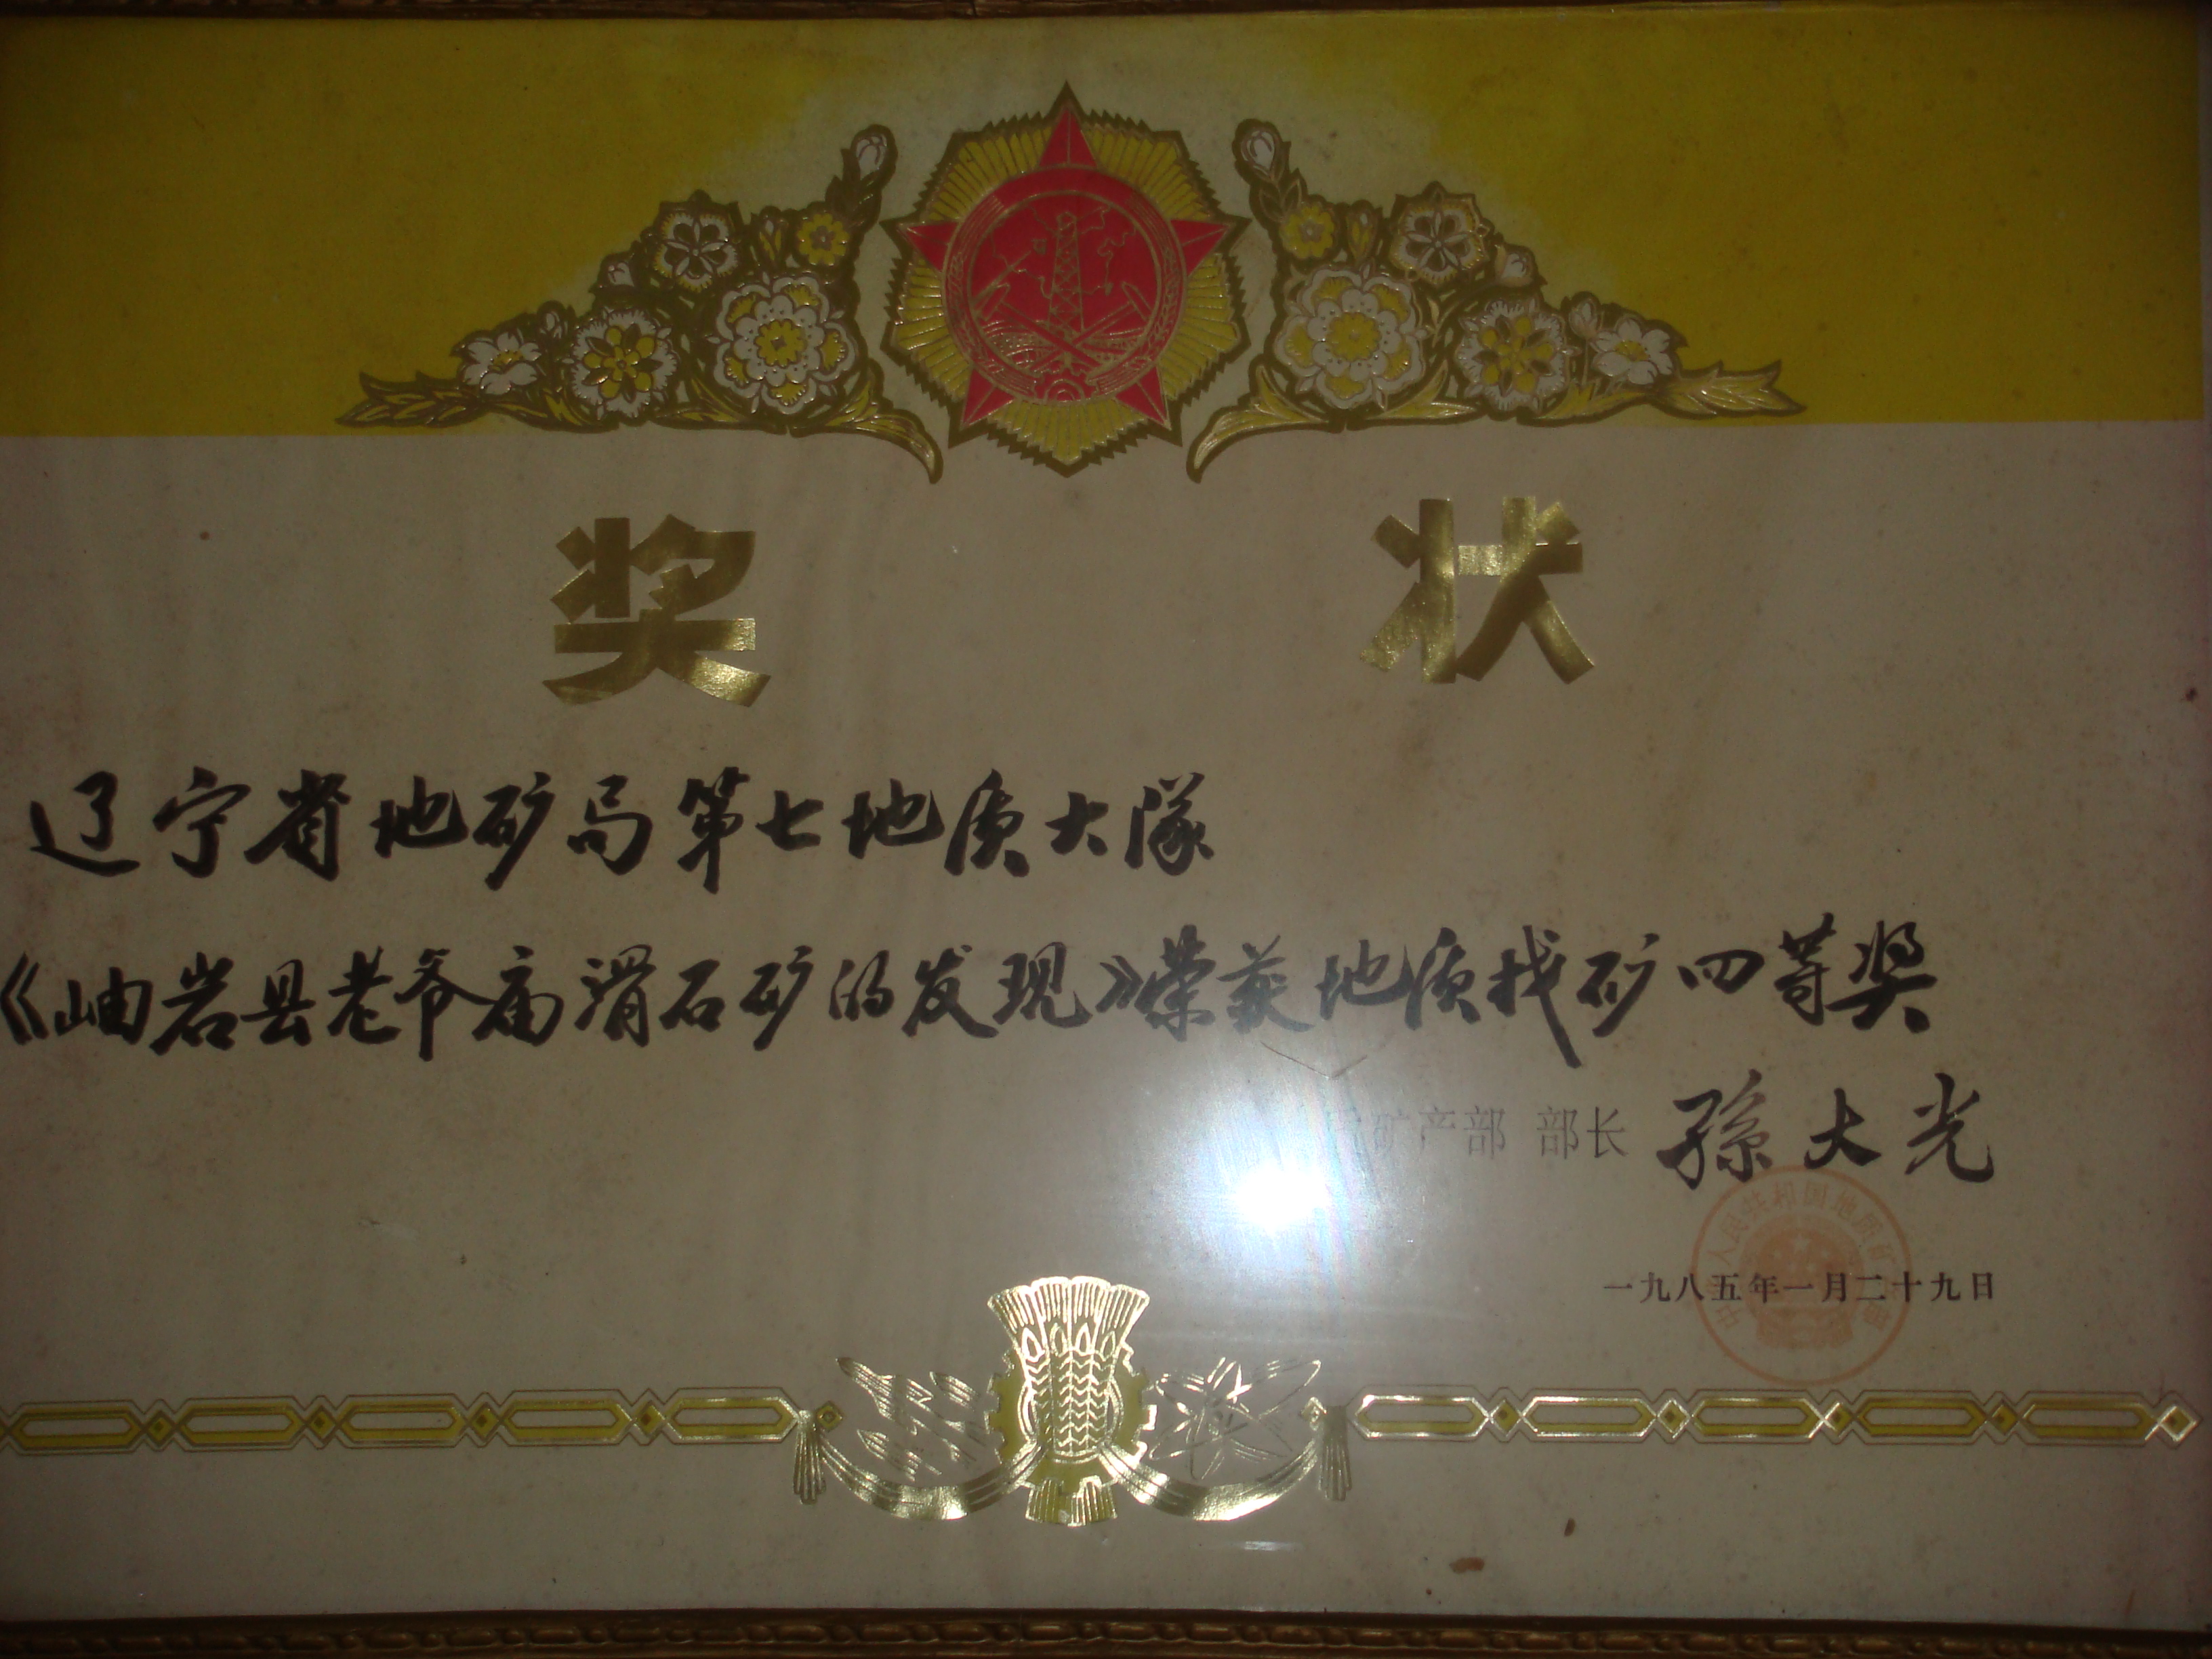 奖 状
辽宁省地矿局第七地质大队
《岫岩县老爷庙滑石矿的发现》荣获地质找矿四等奖
质矿产部 部长 孫大光
人民共和国地质矿
一九八五年一月二十九日